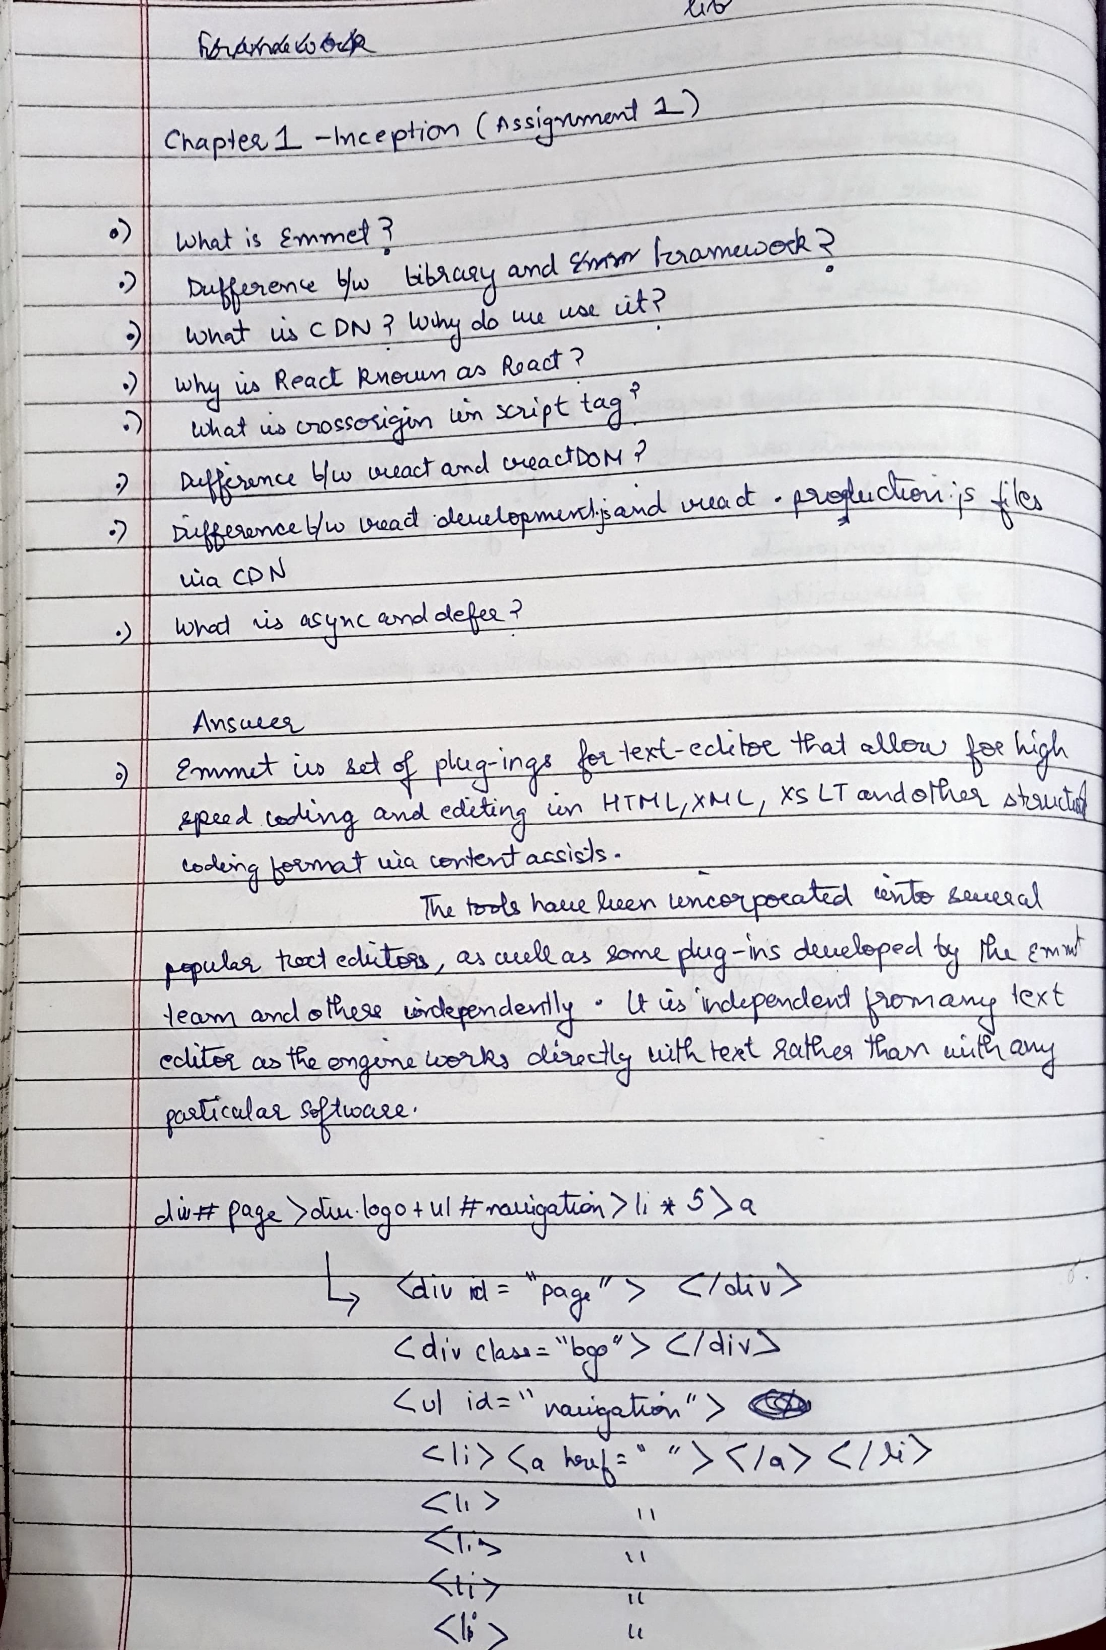 lib
Framework
Chapter 1 - Inception (Assignment 1)
What is Emmet?
Difference b/w library and framework?
What is CDN? Why do we use it?
Why is React known as React?
What is crossorigin in script tag?
Difference b/w react and reactDOM?
Difference b/w react development.js and react . production.js files
via CDN
What is async and defer?
Answer
Emmet is set of plug-ings for text-editor that allow for high
speed coding and editing in HTML, XML, XSLT and other structed
coding format via content assists.
The tools have been incorporated into several
popular text editors, as well as some plug-ins developed by the Emmt
team and others independently. It is independent from any text
editor as the engine works directly with text rather than with any
particular software.
div# page >div.logo+ul #navigation> li * 5>a
<div id = "page"> </div>
<div class = "logo"> </div>
<ul id=" navigation">
<li> <a href=" "> </a> </li>
<li> "
<li> "
<li> "
<li> "